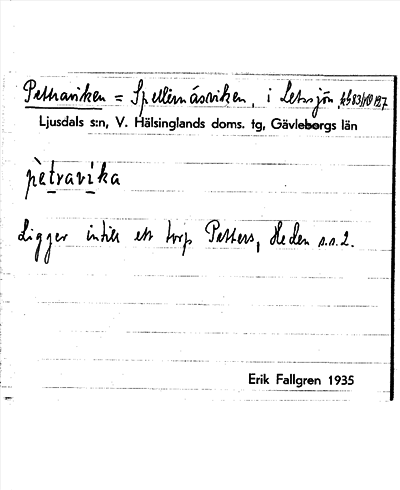 Pettraviken = Spellernäsviken, i Letssjön
Ljusdals s:n, V. Hälsinglands doms. tg, Gävleborgs län
pètravika
Ligger intill ett torp Petters, Heden s.s.2.
Erik Fallgren 1935